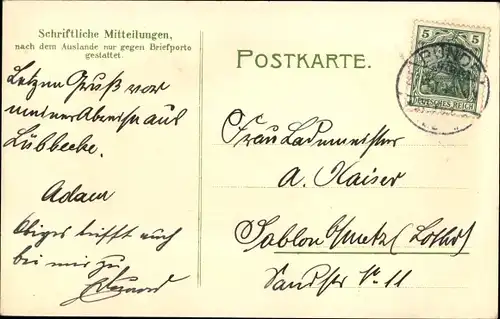 Schriftliche Mitteilungen,
nach dem Auslande nur gegen Briefporto
gestattet.
POSTKARTE.
5 5
DEUTSCHES REICH
BÜNDE
Letzten Gruß vor
meiner Abreise aus
Lübbecke.
Adam
Obiges trifft auch
bei mir zu
Frau Lademeister
A. Kaiser
Sablon b/Metz (Lothr)
Sandstr No 11